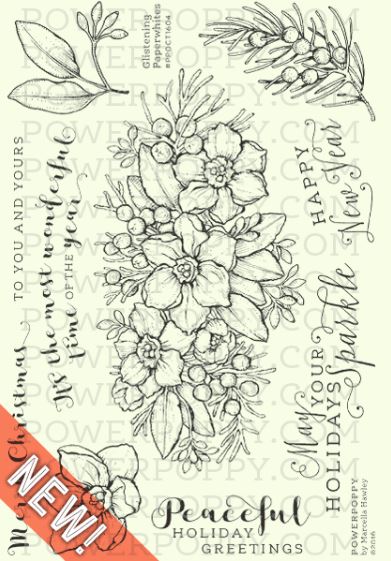 Glistening
Paperwhites
#PPDC11604
TO YOU AND YOURS
Merry Christmas
It's the most wonderful
time OF THE year
HAPPY
New Year
May YOUR
HOLIDAYS Sparkle
Peaceful
HOLIDAY
GREETINGS
POWERPOPPY
by Marcella Hawley
©2016
NEW!
POWERPOPPY.COM